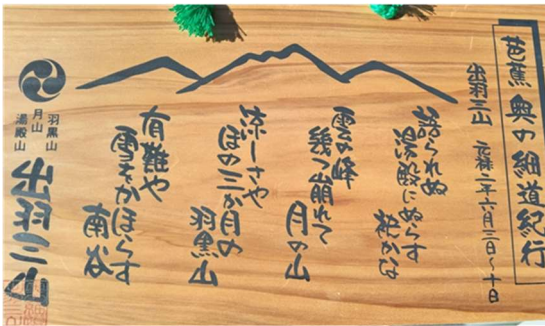 芭蕉 奥の細道紀行
出羽三山 元禄二年六月三日〜十日
語られぬ
湯殿にぬらす
袂かな
雲の峰
幾つ崩れて
月の山
涼しさや
ほの三か月の
羽黒山
有難や
雪をかほらす
南谷
羽黒山
月山
湯殿山
出羽三山